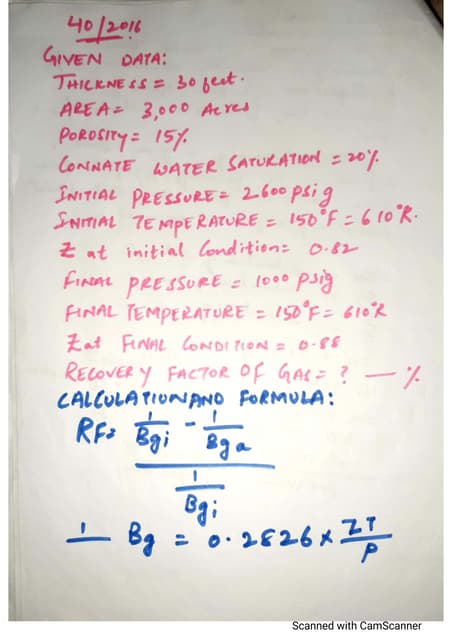 40/2016
GIVEN DATA:
THICKNESS = 30 feet.
AREA = 3,000 Acres
POROSITY = 15%
CONNATE WATER SATURATION = 20%
INITIAL PRESSURE = 2600 psig
INITIAL TEMPERATURE = 150°F = 610°R.
Z at initial Condition = 0.82
FINAL PRESSURE = 1000 psig
FINAL TEMPERATURE = 150°F = 610°R
Z at FINAL CONDITION = 0.88
RECOVERY FACTOR OF GAS = ? — %
CALCULATION AND FORMULA:
RF = 1/Bgi - 1/Bga
1/Bgi
1 Bg = 0.2826 x ZT/P
Scanned with CamScanner